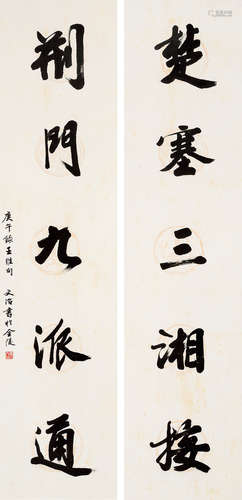 楚塞三湘接
荆門九派通
庚午錄王維句 文治書於金陵